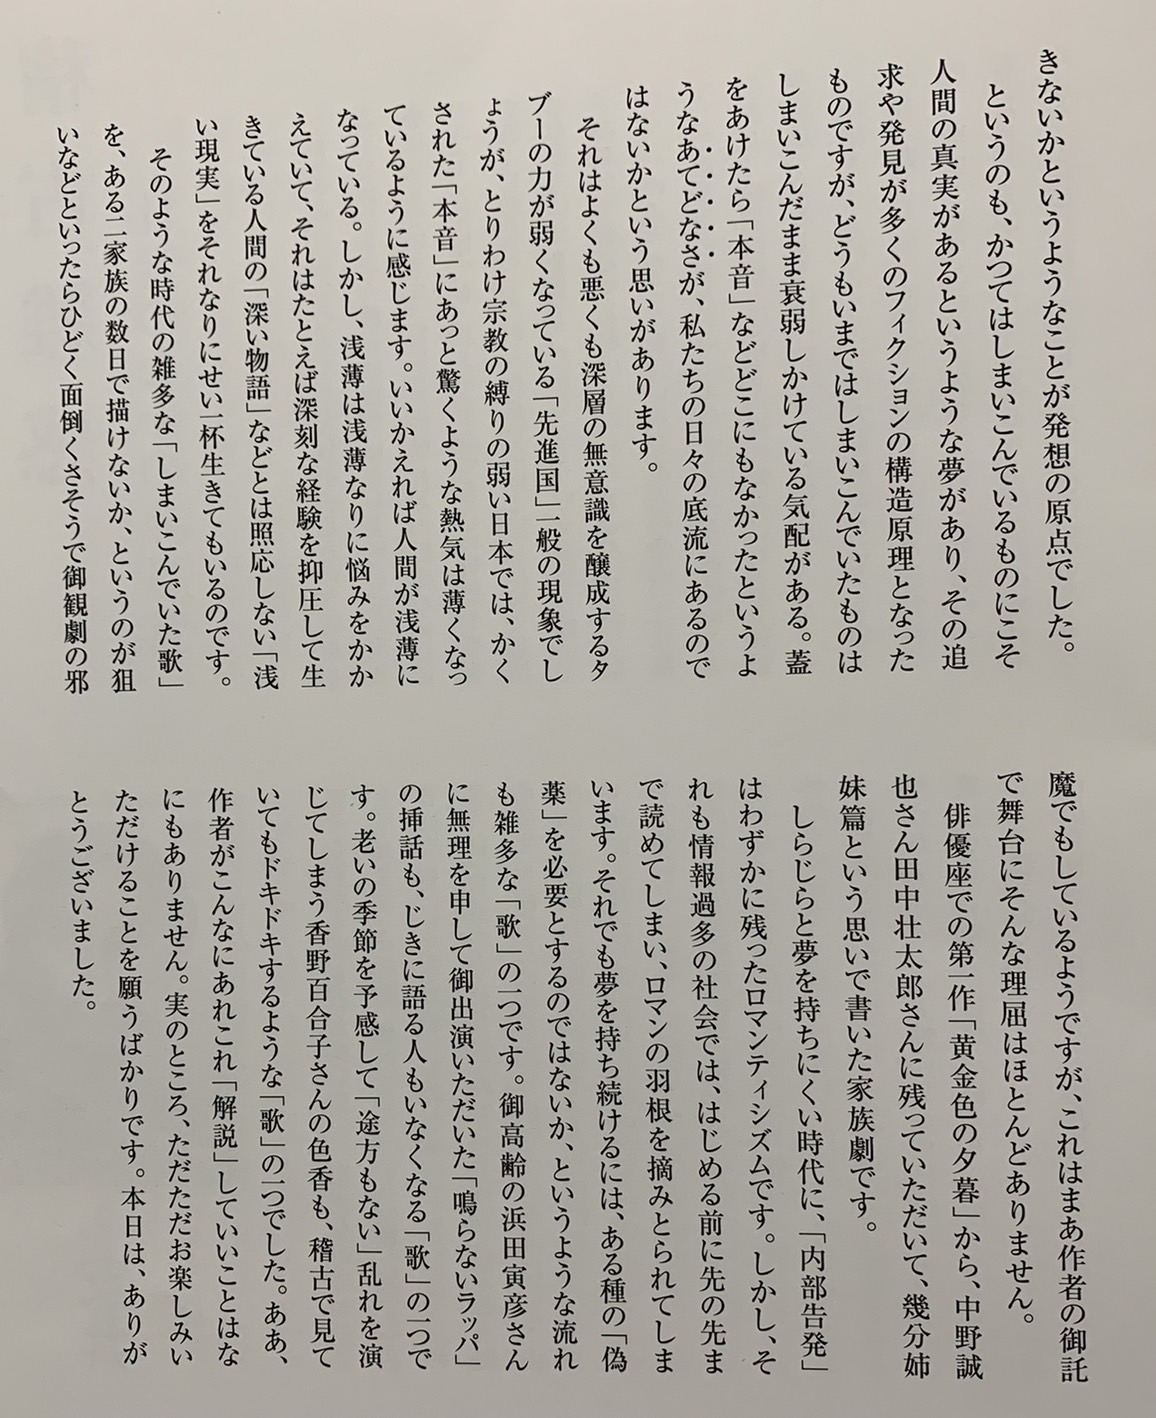 きないかというようなことが発想の原点でした。
というのも、かつてはしまいこんでいるものにこそ
人間の真実があるというような夢があり、その追
求や発見が多くのフィクションの構造原理となった
ものですが、どうもいまではしまいこんでいたものは
しまいこんだまま衰弱しかけている気配がある。蓋
をあけたら「本音」などどこにもなかったというよ
うなあてどなさが、私たちの日々の底流にあるので
はないかという思いがあります。
それはよくも悪くも深層の無意識を醸成するタ
ブーの力が弱くなっている「先進国」一般の現象でし
ょうが、とりわけ宗教の縛りの弱い日本では、かく
された「本音」にあっと驚くような熱気は薄くなっ
ているように感じます。いいかえれば人間が浅薄に
なっている。しかし、浅薄は浅薄なりに悩みをかか
えていて、それはたとえば深刻な経験を抑圧して生
きている人間の「深い物語」などとは照応しない「浅
い現実」をそれなりにせい一杯生きてもいるのです。
そのような時代の雑多な「しまいこんでいた歌」
を、ある二家族の数日で描けないか、というのが狙
いなどといったらひどく面倒くさそうで御観劇の邪
魔でもしているようですが、これはまあ作者の御託
で舞台にそんな理屈はほとんどありません。
俳優座での第一作「黄金色の夕暮」から、中野誠
也さん田中壮太郎さんに残っていただいて、幾分姉
妹篇という思いで書いた家族劇です。
しらじらと夢を持ちにくい時代に、「内部告発」
はわずかに残ったロマンティシズムです。しかし、そ
れも情報過多の社会では、はじめる前に先の先ま
で読めてしまい、ロマンの羽根を摘みとられてしま
います。それでも夢を持ち続けるには、ある種の「偽
薬」を必要とするのではないか、というような流れ
も雑多な「歌」の一つです。御高齢の浜田寅彦さん
に無理を申して御出演いただいた「鳴らないラッパ」
の挿話も、じきに語る人もいなくなる「歌」の一つで
す。老いの季節を予感して「途方もない」乱れを演
じてしまう香野百合子さんの色香も、稽古で見て
いてもドキドキするような「歌」の一つでした。ああ、
作者がこんなにあれこれ「解説」していいことはな
にもありません。実のところ、ただただお楽しみい
ただけることを願うばかりです。本日は、ありが
とうございました。